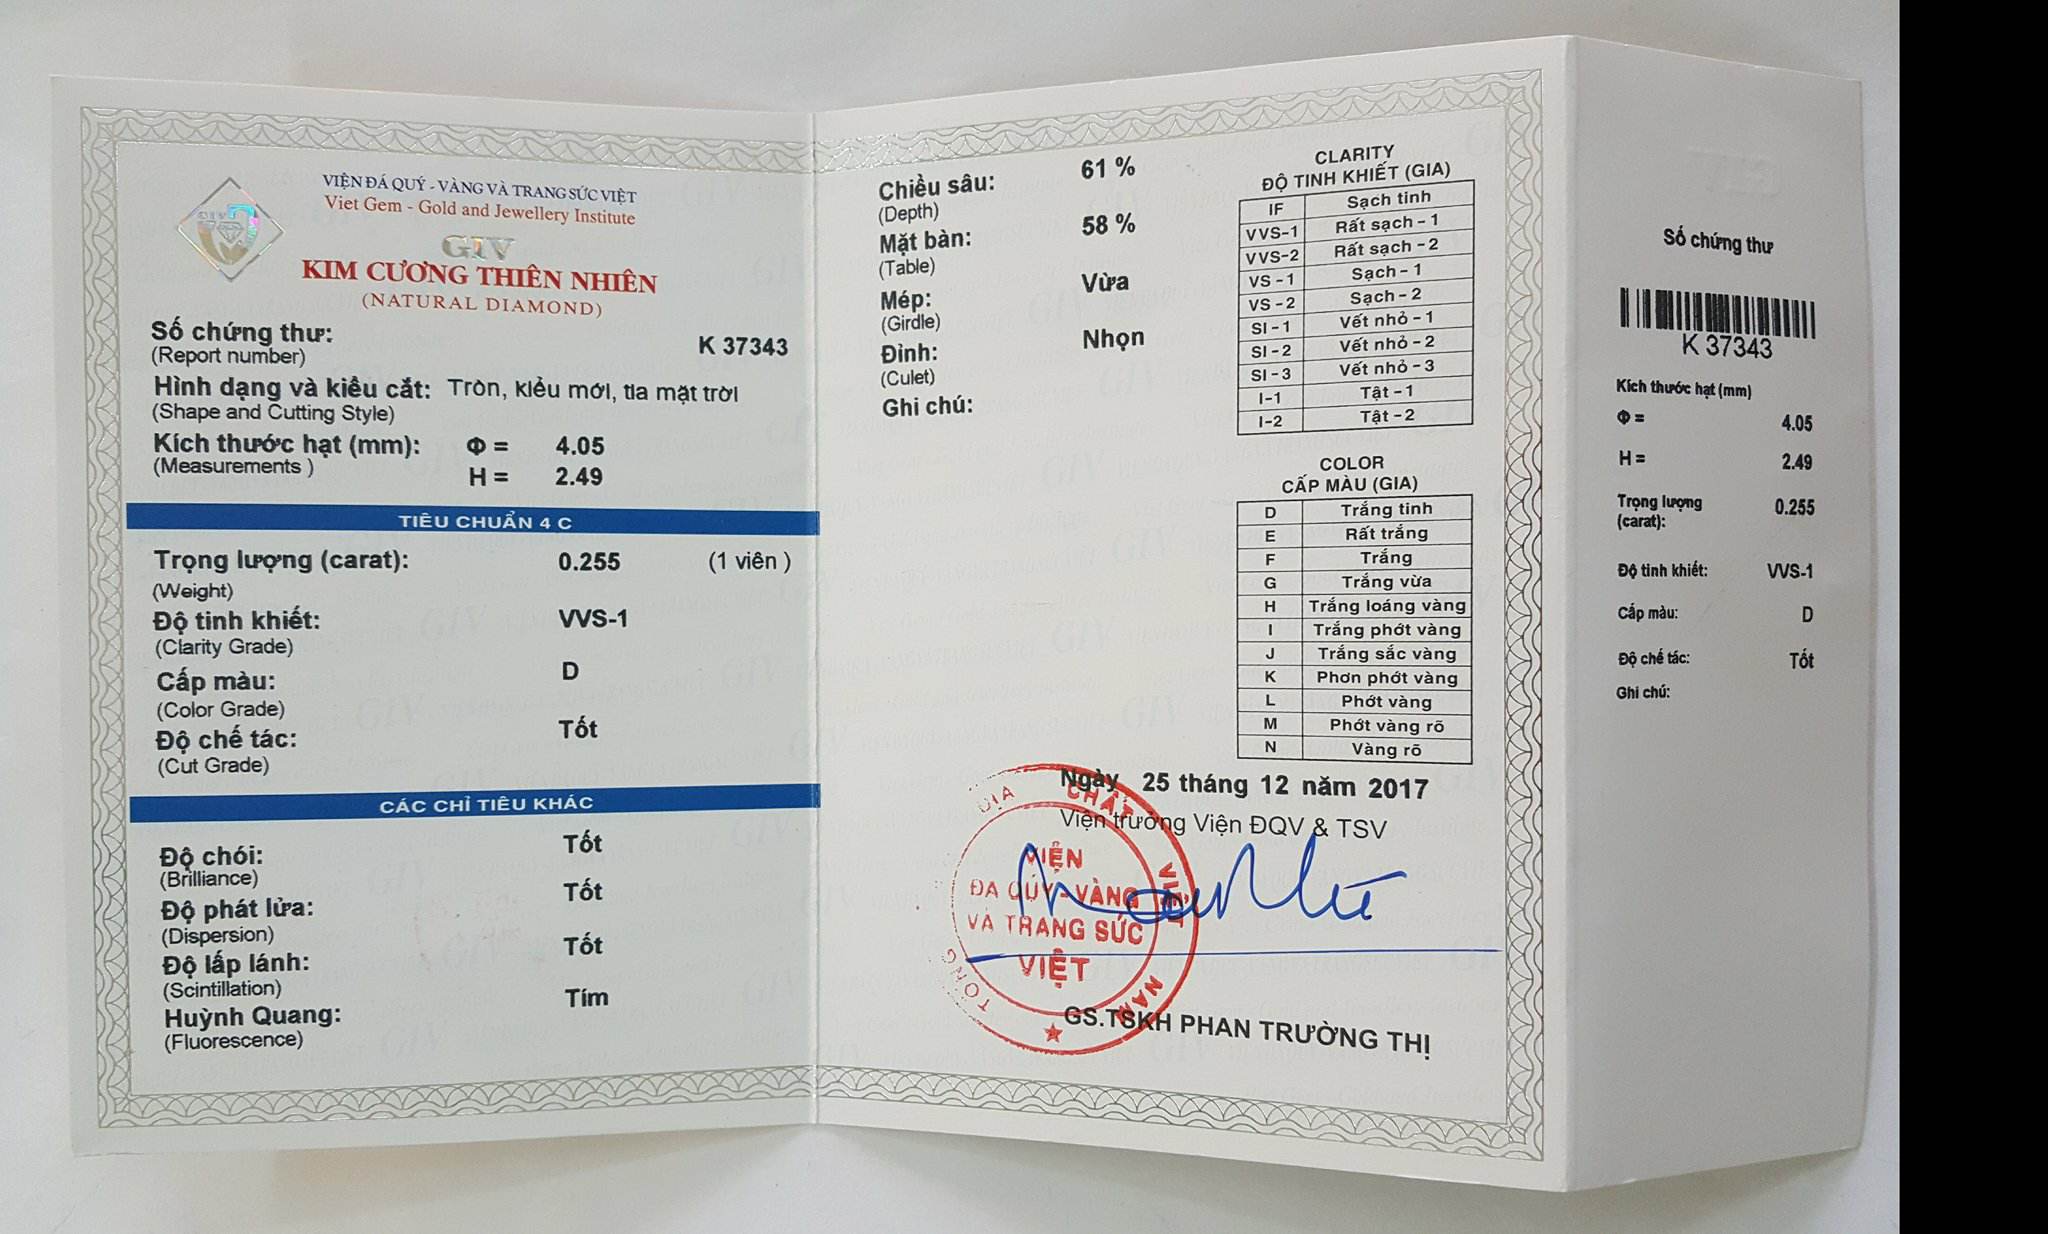 VIỆN ĐÁ QUÝ - VÀNG VÀ TRANG SỨC VIỆT
Viet Gem - Gold and Jewellery Institute
GIV
KIM CƯƠNG THIÊN NHIÊN
(NATURAL DIAMOND)
Số chứng thư: K 37343
(Report number)
Hình dạng và kiểu cắt: Tròn, kiểu mới, tia mặt trời
(Shape and Cutting Style)
Kích thước hạt (mm): Φ = 4.05
(Measurements ) H = 2.49
TIÊU CHUẨN 4 C
Trọng lượng (carat): 0.255 (1 viên )
(Weight)
Độ tinh khiết: VVS-1
(Clarity Grade)
Cấp màu: D
(Color Grade)
Độ chế tác: Tốt
(Cut Grade)
CÁC CHỈ TIÊU KHÁC
Độ chói: Tốt
(Brilliance)
Độ phát lửa: Tốt
(Dispersion)
Độ lấp lánh: Tốt
(Scintillation)
Huỳnh Quang: Tím
(Fluorescence)
Chiều sâu: 61 %
(Depth)
Mặt bàn: 58 %
(Table)
Mép: Vừa
(Girdle)
Đỉnh: Nhọn
(Culet)
Ghi chú:
CLARITY
ĐỘ TINH KHIẾT (GIA)
IF Sạch tinh
VVS-1 Rất sạch - 1
VVS-2 Rất sạch - 2
VS - 1 Sạch - 1
VS - 2 Sạch - 2
SI - 1 Vết nhỏ - 1
SI - 2 Vết nhỏ - 2
SI - 3 Vết nhỏ - 3
I-1 Tật - 1
I-2 Tật - 2
COLOR
CẤP MÀU (GIA)
D Trắng tinh
E Rất trắng
F Trắng
G Trắng vừa
H Trắng loáng vàng
I Trắng phớt vàng
J Trắng sắc vàng
K Phơn phớt vàng
L Phớt vàng
M Phớt vàng rõ
N Vàng rõ
Ngày 25 tháng 12 năm 2017
Viện trưởng Viện ĐQV & TSV
TỔNG ĐỊA CHẤT VIỆT NAM
VIỆN
ĐÁ QUÝ - VÀNG
VÀ TRANG SỨC
VIỆT
GS.TSKH PHAN TRƯỜNG THỊ
Số chứng thư
K 37343
Kích thước hạt (mm)
Φ = 4.05
H = 2.49
Trọng lượng
(carat): 0.255
Độ tinh khiết: VVS-1
Cấp màu: D
Độ chế tác: Tốt
Ghi chú: